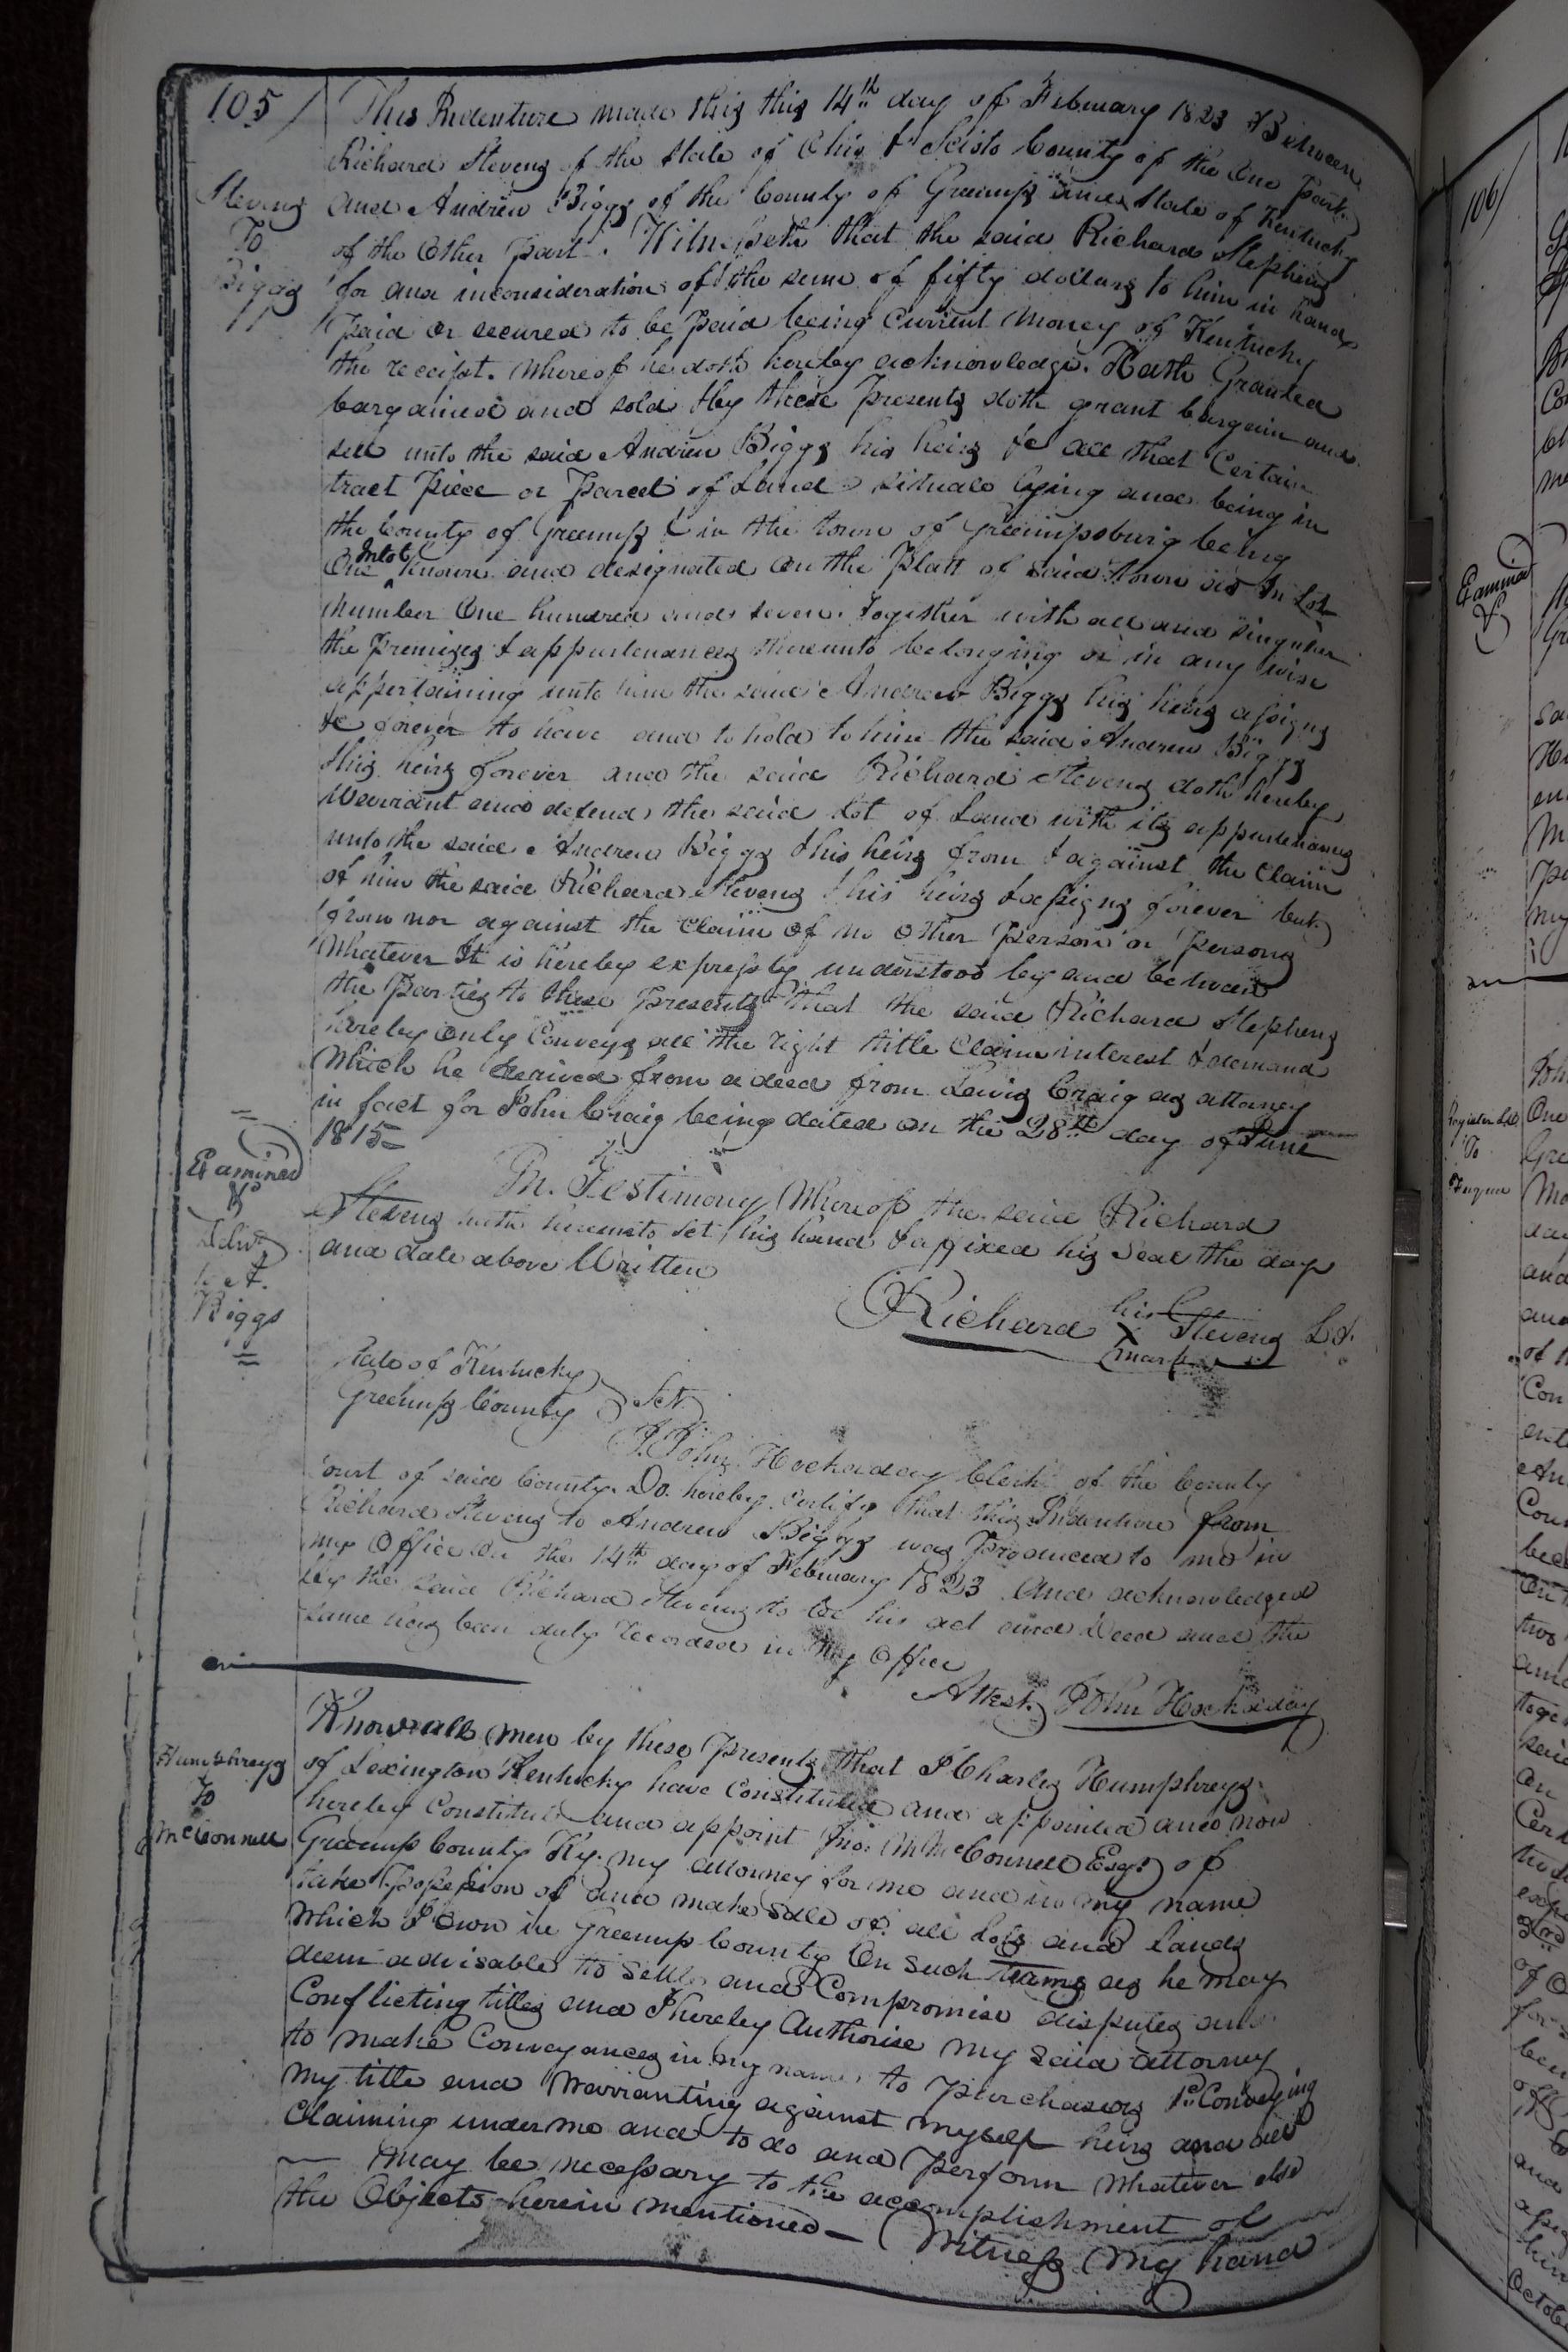 105/
Stevens
To
Biggs
This Indenture made this this 14th day of February 1823 Between
Richard Stevens of the State of Ohio & Scioto County of the One part
and Andrew Biggs of the County of Greenup and State of Kentucky
of the Other part. Witnesseth that the said Richard Stephens
for and inconsideration of the sum of fifty dollars to him in hand
paid or secured to be paid being Current Money of Kentucky
the receipt. Whereof he doth hereby acknowledge. Hath Granted
bargained and sold & by these Presents doth grant bargain and
sell unto the said Andrew Biggs his heirs &c all that Certain
tract Piece or Parcel of Land situate lying and being in
the County of Greenup & in the town of Greenupsburg being
One Inlot known and designated on the Platt of said town as In Lot
Number One hundred and seven. Together with all and singular
the Premises & appurtenances thereunto belonging or in any wise
appertaining unto him the said Andrew Biggs his heirs assigns
&c forever to have and to hold to him the said Andrew Biggs
& his heirs forever and the said Richard Stevens doth hereby
Warrant and defend the said Lot of Land with its appurtenances
unto the said Andrew Biggs & his heirs from & against the Claim
of him the said Richard Stevens & his heirs & assigns forever but
from nor against the Claim of no Other Person or Persons
Whatever It is hereby expressly understood by and between
the Parties to these Presents that the said Richard Stephens
hereby only Conveys all the right title Claim interest & demand
Which he derived from a deed from Lewis Craig as attorney
in fact for John Craig being dated on the 28th day of June
1815
In Testimony Whereof the said Richard
Stevens hath hereunto set his hand & affixed his Seal the day
and date above Written
Examined
Delivd
to A.
Biggs
his
Richard X Stevens L.S.
mark
State of Kentucky
Greenup County Sct.
I John Hockaday Clerk of the County
Court of said County. Do. hereby. Certify that this Indenture from
Richard Stevens to Andrew Biggs was Produced to me in
my Office on the 14th day of February 1823 and acknowledged
by the said Richard Stevens to be his act and Deed and the
same has been duly recorded in My Office
Attest. John Hockaday
Humphreys
To
McConnell
Know all men by these Presents that I Charles Humphreys
of Lexington Kentucky have Constituted and appointed and now
hereby Constitute and appoint Jno. M McConnell Esqr. of
Greenup County Ky. my attorney for me and in my name
take Possession of and make sale of all lots and lands
which I own in Greenup County On such terms as he may
deem advisable to settle and Compromise disputes and
Conflicting titles and I hereby Authorise my said attorney
to make Conveyances in my name to purchasers &c Conveying
my title and Warranting against myself heirs and all
Claiming under me and to do and Perform Whatever else
may be necessary to the accomplishment of
the Objects herein mentioned Witness My hand
106/
Examined
Register
To